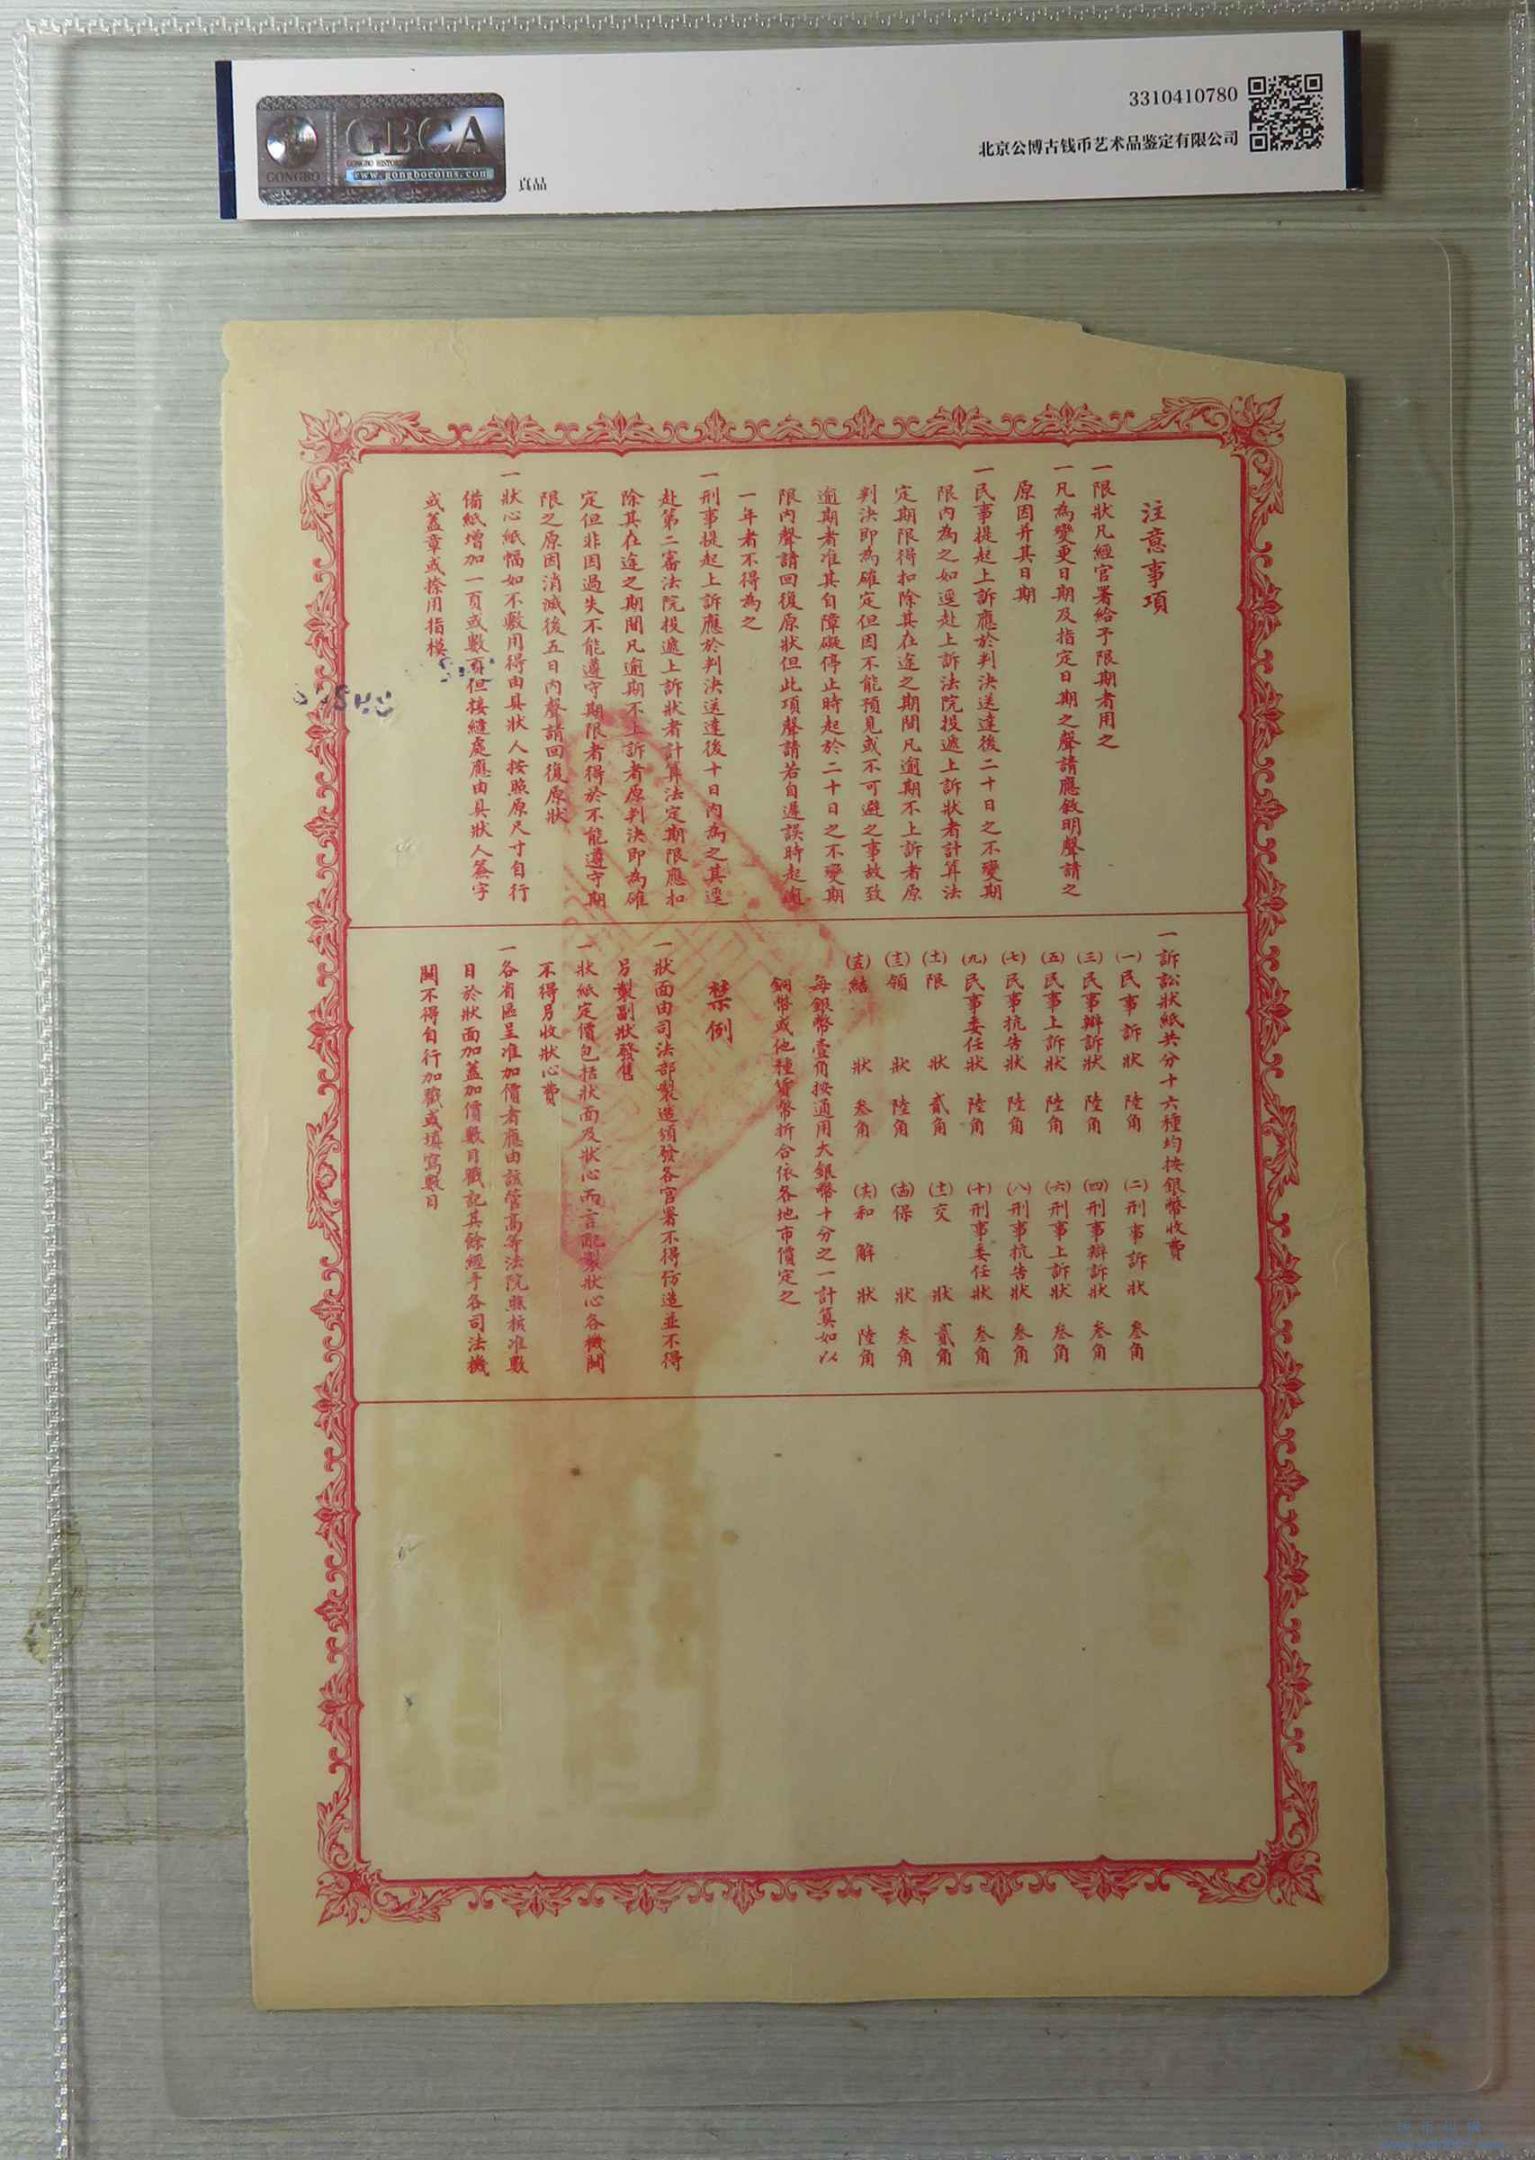 GBCA
GONGBO
www.gongbocoins.com
真品
3310410780
北京公博古钱币艺术品鉴定有限公司
注意事項
一限狀凡經官署給予限期者用之
一凡為變更日期及指定日期之聲請應敘明聲請之
原因并其日期
一民事提起上訴應於判決送達後二十日之不變期
限內為之如逕赴上訴法院投遞上訴狀者計算法
定期限得扣除其在途之期間凡逾期不上訴者原
判決即為確定但因不能預見或不可避之事故致
逾期者准其自障礙停止時起於二十日之不變期
限內聲請回復原狀但此項聲請若自遲誤時起逾
一年者不得為之
一刑事提起上訴應於判決送達後十日內為之其逕
赴第二審法院投遞上訴狀者計算法定期限應扣
除其在途之期間凡逾期不上訴者原判決即為確
定但非因過失不能遵守期限者得於不能遵守期
限之原因消滅後五日內聲請回復原狀
一狀心紙幅如不敷用得由具狀人按照原尺寸自行
備紙增加一頁或數頁但接縫處應由具狀人簽字
或蓋章或捺用指模
一訴訟狀紙共分十六種均按銀幣收費
(一)民事訴狀 陸角 (二)刑事訴狀 叁角
(三)民事辯訴狀 陸角 (四)刑事辯訴狀 叁角
(五)民事上訴狀 陸角 (六)刑事上訴狀 叁角
(七)民事抗告狀 陸角 (八)刑事抗告狀 叁角
(九)民事委任狀 陸角 (十)刑事委任狀 叁角
(十一)限狀 貳角 (十二)交狀 貳角
(十三)領狀 陸角 (十四)保狀 叁角
(十五)結狀 叁角 (十六)和解狀 陸角
每銀幣壹角按通用大銀幣十分之一計算如以
銅幣或他種貨幣折合依各地市價定之
禁例
一狀面由司法部製造頒發各官署不得仿造並不得
另製副狀發售
一狀紙定價包括狀面及狀心而言配製狀心各機關
不得另收狀心費
一各省區呈准加價者應由該管高等法院照核准數
目於狀面加蓋加價數目戳記其餘經手各司法機
關不得自行加戳或填寫數目